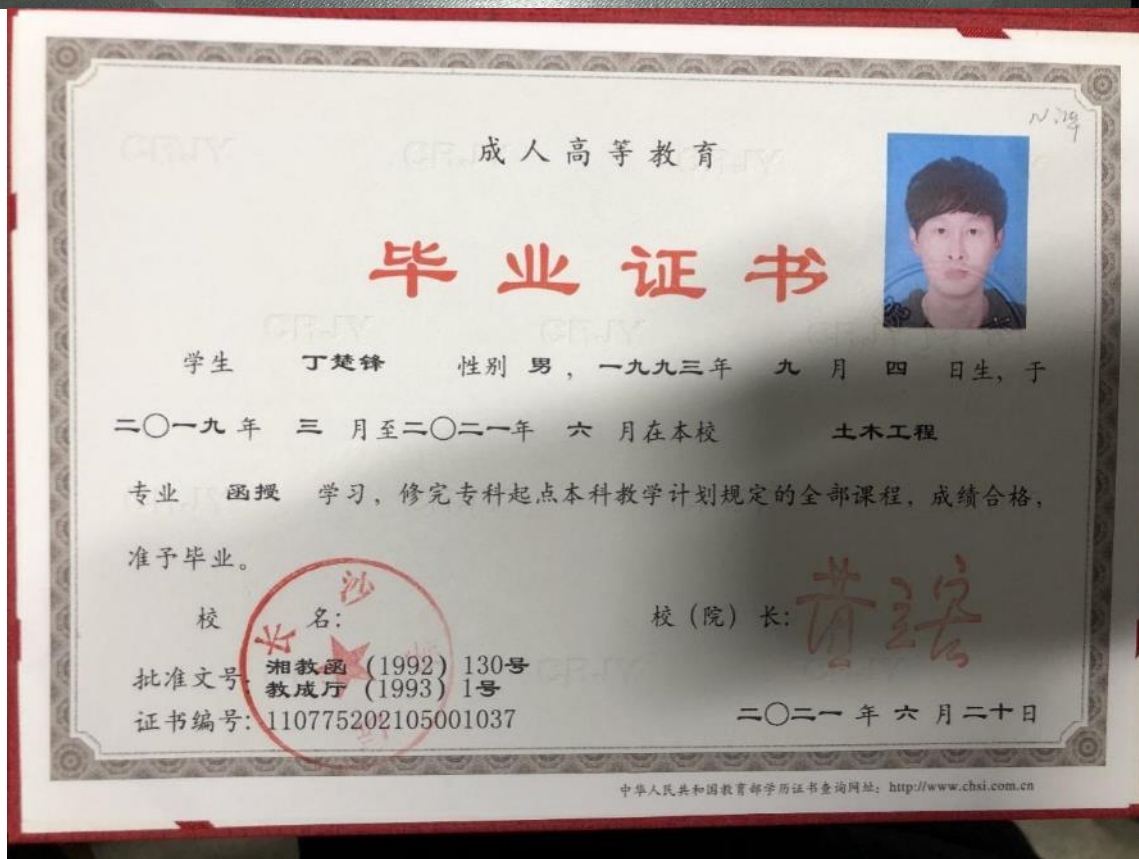 成人高等教育
毕业证书
学生 丁楚锋 性别 男，一九九三年 九 月 四 日生，于
二〇一九 年 三 月至二〇二一年 六 月在本校 土木工程
专业 函授 学习，修完专科起点本科教学计划规定的全部课程，成绩合格，
准予毕业。
校 名： 校（院）长：
批准文号：湘教函（1992）130号
教成厅（1993）1号
证书编号：110775202105001037
二〇二一 年 六 月二十日
中华人民共和国教育部学历证书查询网址：http://www.chsi.com.cn
长沙